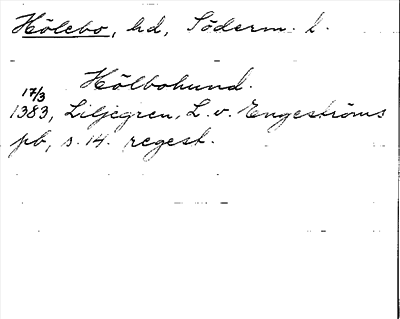 Hölebo, hd, Söderm. l.
Hölbohund.
17/3
1383, Liljegren, L. v. Engeströms
pb, s. 14. regest.